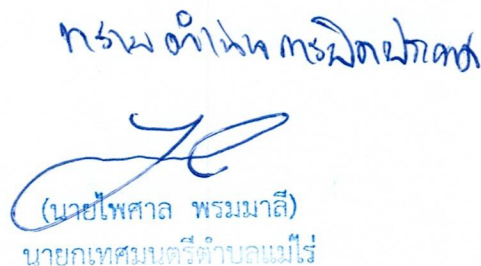 ทราบ ดำเนินการปิดประกาศ
(นายไพศาล พรมมาลี)
นายกเทศมนตรีตำบลแม่ไร่